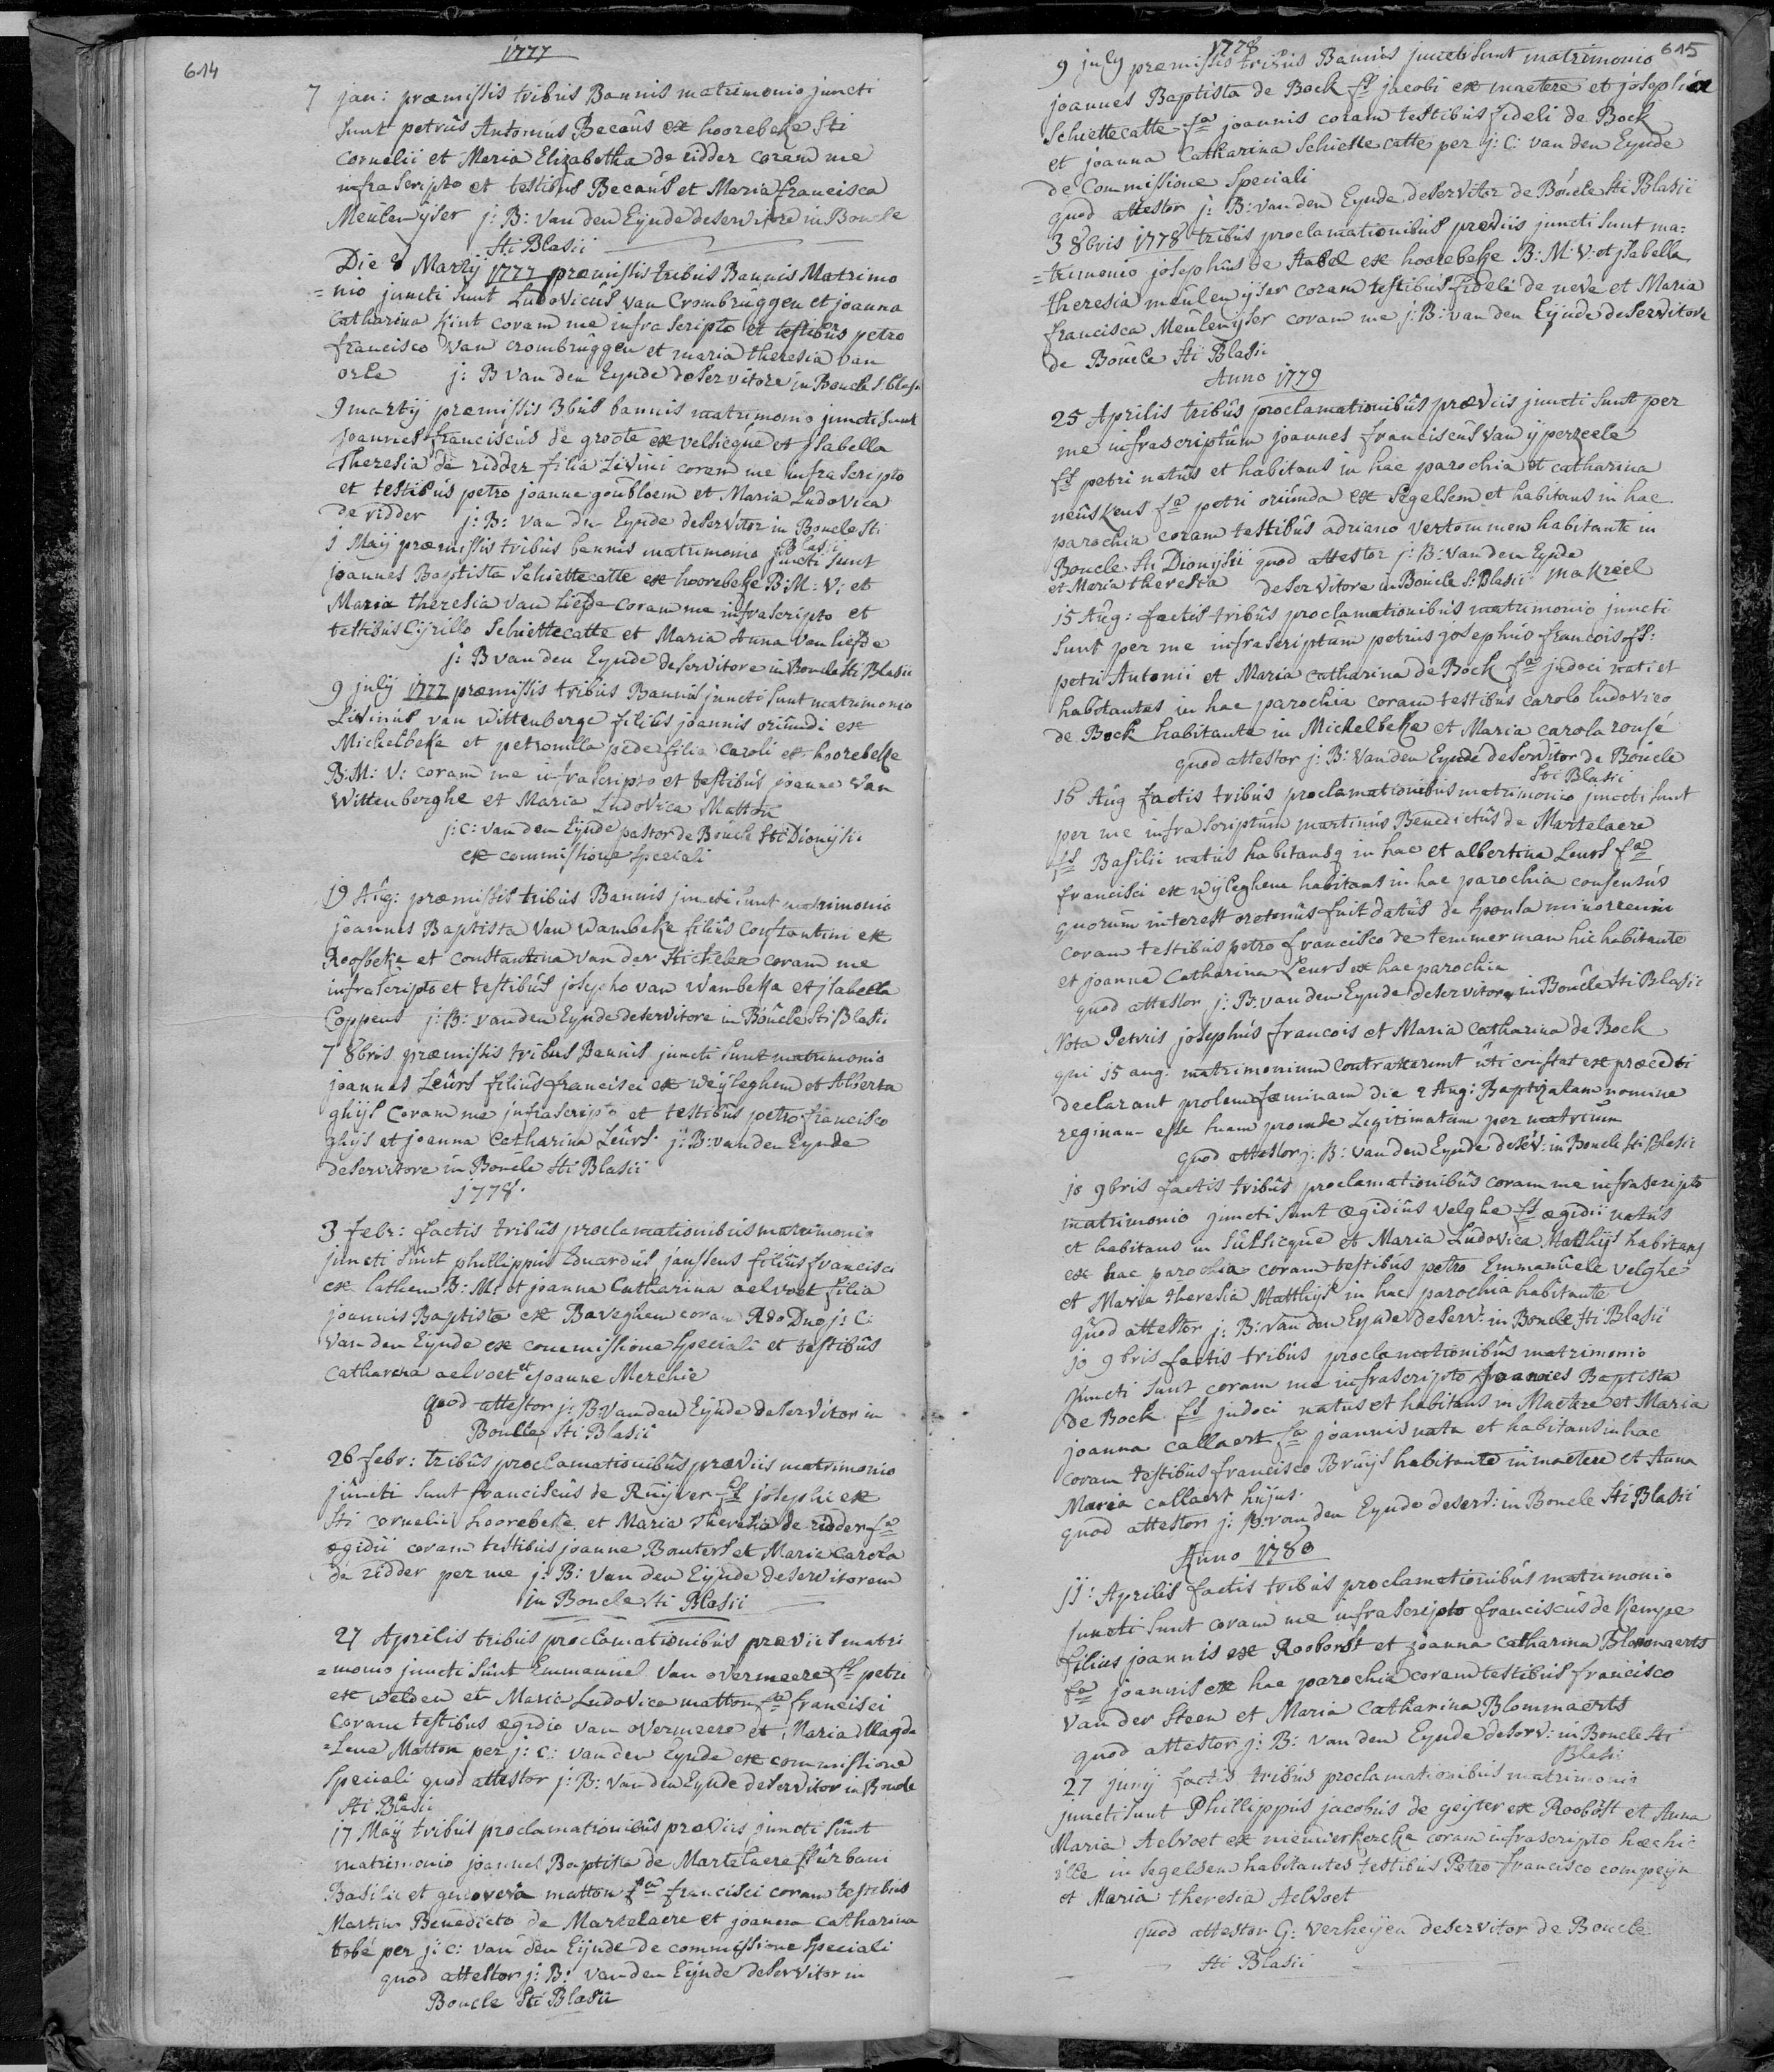 614
1777
7 jan: præmissis tribus Bannis matrimonio juncti
sunt petrus Antonius Becaus ex hoorebeke Sti
Cornelii et Maria Elizabetha de ridder coram me
infra scripto et testibus Becaus et Maria francisca
Meulenyser j: B: van den Eynde deservitore in Boucle
Sti Blasii
Die 8 Martij 1777 præmissis tribus Bannis Matrimo
=nio juncti sunt Ludovicus van Crombruggen et joanna
Catharina Kint coram me infra scripto et testibus petro
francisco van crombruggen et maria theresia van
orle j: B van den Eynde deservitore in Boucle S. blasii
9 martij præmissis 3bus bannis matrimonio juncti sunt
joannes franciscus de groote ex velsicque et isabella
Theresia de ridder filia Livini coram me infra scripto
et testibus petro joanne goubloem et Maria Ludovica
de ridder j: B: van den Eynde deservitor in Boucle Sti
Blasii
1 Maij præmissis tribus bannis matrimonio juncti sunt
joannes Baptista Schiettecatte ex hoorebeke B: M: V: et
Maria theresia van Liefde coram me infrascripto et
testibus Cyrillo Schiettecatte et Maria Anna van liefde
j: B van den Eynde deservitore in Boucle Sti Blasii
9 julij 1777 præmissis tribus Bannis juncti sunt matrimonio
Livinus van Wittenberge filius joannis oriundi ex
Michelbeke et petronilla pede filia Caroli ex hoorebeke
B: M: V: coram me infrascripto et testibus joanne van
Wittenberghe et Maria Ludovica Matton
j: C: van den Eynde pastor de Boucle Sti Dionysii
ex commissione speciali
19 Aug: præmissis tribus Bannis juncti sunt matrimonio
joannes Baptista Van Wambeke filius Constantini ex
Roosbeke et Constantina van der Stichelen coram me
infrascripto et testibus josepho van Wambeke et isabella
Coppens j: B: van den Eynde deservitore in Boucle Sti Blasii
7 8bris præmissis tribus Bannis juncti sunt matrimonio
joannes Leurs filius francisci ex Weyleghem et Alberta
ghijs Coram me infrascripto et testibus petro francisco
ghijs et joanna Catharina Leurs. j: B: van den Eynde
deservitore in Boucle Sti Blasii
1778.
3 febr: factis tribus proclamationibus matrimonio
juncti sunt phillippus Eduardus janssens filius francisci
ex lathem B: M: et joanna Catharina aelvoet filia
joannis Baptista ex Baveghem coram Rdo Dno j: C:
van den Eynde ex commissione speciali et testibus
Catharina aelvoet et joanne Merchie
quod attestor j: B: van den Eynde deservitor in
Boucle Sti Blasii
26 febr: tribus proclamationibus præviis matrimonio
juncti sunt franciscus de Ruyver fs josephi ex
Sti Cornelii hoorebeke et Maria Theresia de ridder fa
ægidii coram testibus joanne Bouters et Maria Carola
de ridder per me j: B: van den Eynde deservitorem
in Boucle Sti Blasii
27 Aprilis tribus proclamationibus præviis matri
=monio juncti sunt Emmanuel van overmeere fs petri
ex Welden et Maria Ludovica matton fa francisci
coram testibus ægidio van overmeere et Maria Magda
=Lena Matton per j: C: van den Eynde ex commissione
speciali quod attestor j: B: van den Eynde deservitor in Boucle
Sti Blasii
17 Maij tribus proclamationibus præviis juncti sunt
matrimonio joannes Baptista de Martelaere fs urbani
Basilii et genovera matton fa francisci coram testibus
Martino Benedicto de Martelaere et joanna Catharina
tobé per j: C: van den Eynde de commissione speciali
quod attestor j: B: van den Eynde deservitor in
Boucle Sti Blasii
615
1778
9 july præmissis tribus Bannis juncti sunt matrimonio
joannes Baptista de Bock fs jacobi ex maetere et josepha
Schiettecatte fa joannis coram testibus fideli de Bock
et joanna Catharina Schiettecatte per j: C: van den Eynde
de Commissione speciali
quod attestor j: B: van den Eynde deservitor de Boucle Sti Blasii
3 8bris 1778 tribus proclamationibus præviis juncti sunt ma=
=trimonio josephus de Stabel ex hoorebeke B: M: V: et isabella
theresia meulenyser coram testibus fideli de neve et Maria
francisca Meulenyser coram me j: B: van den Eynde deservitore
de Boucle Sti Blasii
Anno 1779
25 Aprilis tribus proclamationibus præviis juncti sunt per
me infrascriptum joannes franciscus van yperzeele
fs petri natus et habitans in hac parochia et catharina
neuskens fa petri oriunda ex Segelsem et habitans in hac
parochia coram testibus adriano vertommen habitante in
Boucle Sti Dionysii quod attestor j: B: van den Eynde
et Maria theresia deservitore in Boucle S: Blasii makreel
15 Aug: factis tribus proclamationibus matrimonio juncti
sunt per me infrascriptum petrus josephus francois fs:
petri Antonii et Maria catharina de Bock fa judoci nati et
habitantes in hac parochia coram testibus carolo ludovico
de Bock habitante in Michelbeke et Maria carola rousé
quod attestor j: B: Van den Eynde deservitor de Boucle
Sti Blasii
15 Aug factis tribus proclamationibus matrimonio juncti sunt
per me infra scriptum martinus Benedictus de Martelaere
fs Basilii natus habitansq in hac et albertina Leurs fa
francisci ex wyleghem habitans in hac parochia consensus
quorum interest oretenus fuit datus de sponsa minorenni
coram testibus petro francisco de temmerman hic habitante
et joanna Catharina Leurs ex hac parochia
quod attestor j: B: van den Eynde deservitore in Boucle Sti Blasii
Nota Petrus josephus francois et Maria Catharina de Bock
qui 15 aug. matrimonium contraxerunt uti constat ex præcedti
declarant prolem fæminam die 2 Aug: Baptizatam nomine
reginam esse suam proinde Legitimatam per matrium
quod attestor j: B: van den Eynde deserv: in Boucle Sti Blasii
10 9bris factis tribus proclamationibus coram me infrascripto
matrimonio juncti sunt ægidius Velghe fs ægidii natus
et habitans in Sulsicque et Maria Ludovica Matthijs habitans
ex hac parochia coram testibus petro Emmanuele Velghe
et Maria theresia Matthijs in hac parochia habitante
quod attestor j: B: van den Eynde deserv: in Boucle Sti Blasii
10 9bris factis tribus proclamationibus matrimonio
juncti sunt coram me infrascripto joannes Baptista
de Bock fs judoci natus et habitans in Maetere et Maria
joanna callaert fa joannis nata et habitans in hac
coram testibus francisco Bruijs habitante in maetere et Anna
Maria callaert hujus.
quod attestor j: B: van den Eynde deserv: in Boucle Sti Blasii
Anno 1780
11: Aprilis factis tribus proclamationibus matrimonio
juncti sunt coram me infrascripto franciscus de Kempe
filius joannis ex Rooborst et joanna catharina Blommaerts
fa joannis ex hac parochia coram testibus francisco
Van der Steen et Maria Catharina Blommaerts
quod attestor j: B: van den Eynde deserv: in Boucle Sti
Blasii
27 junij factis tribus proclamationibus matrimonio
juncti sunt Phillippus jacobus de geyter ex Roobost et Anna
Maria Aelvoet ex nieuwerkercke coram infrascripto hæc hic
ille in segelsen habitantes testibus Petro francisco compeyn
et Maria theresia Aelvoet
quod attestor G: Verheyen deservitor de Boucle
Sti Blasii